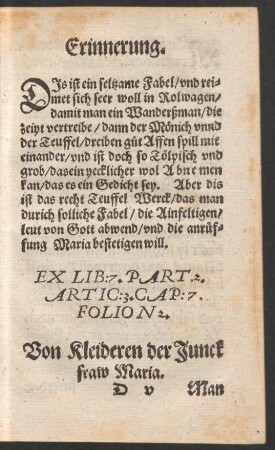 Erinnerung.
DIs ist ein seltzame Fabel/vnd rei-
met sich seer woll in Rolwagen/
damit man ein Wanderßman/die
zeiyt vertreibe/dann der Mönich vnnd
der Teuffel/dreiben güt Affen spill mit
einander/vnd ist doch so Tölpisch vnd
grob/das ein yecklicher wol Abnemen
kan/das es ein Gedicht sey. Aber dis
ist das recht Teuffel Werck/das man
durich solliche Fabel/die Ainfeltigen/
leut von Gott abwend/vnd die anrüf-
fung Maria bestetigen will.
EX LIB:7. PART 2.
ARTIC:3. CAP:7.
FOLIO N 2.
Von Kleideren der Junck
fraw Maria.
D v Man